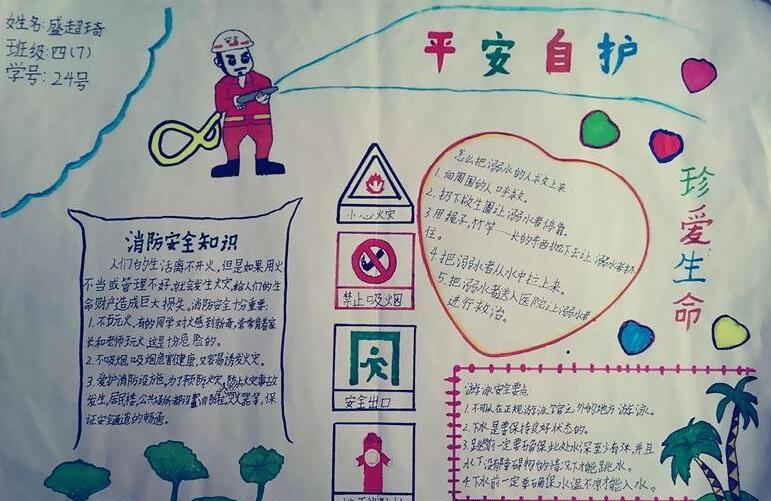 姓名:盛超琦
班级:四(7)
学号:24号
平安自护
珍爱生命
消防安全知识
人们的生活离不开火,但是如果用火
不当或管理不好,就会发生火灾,给人们的生
命财产造成巨大损失。消防安全十分重要:
1.不玩火,有的同学对火感到新奇,常常背着家
长和老师玩火,这是十分危险的。
2.不吸烟,吸烟危害健康,又容易诱发火灾。
3.爱护消防设施,为了预防火灾,防止火灾事故
发生,居民楼、公共场所都设置消防栓、灭火器等,保
证安全通道的畅通。
小心火灾
禁止吸烟
安全出口
怎么把溺水的人救上来
1.向周围的人呼救。
2.扔下救生圈让溺水者停靠。
3.用绳子,竹竿……长的东西抛下去让溺水者抓
住。
4.把溺水者从水中拉上来。
5.把溺水者送入医院让溺水者
进行救治。
游泳安全要点
1.不可以在正规游泳馆之外的地方游泳。
2.下水是要保持良好状态的。
3.跳前一定要确保此处水深至少有米,并且
水下没有障碍物的情况下才能跳水。
4.下水前一定要确保水温不凉才能入水。